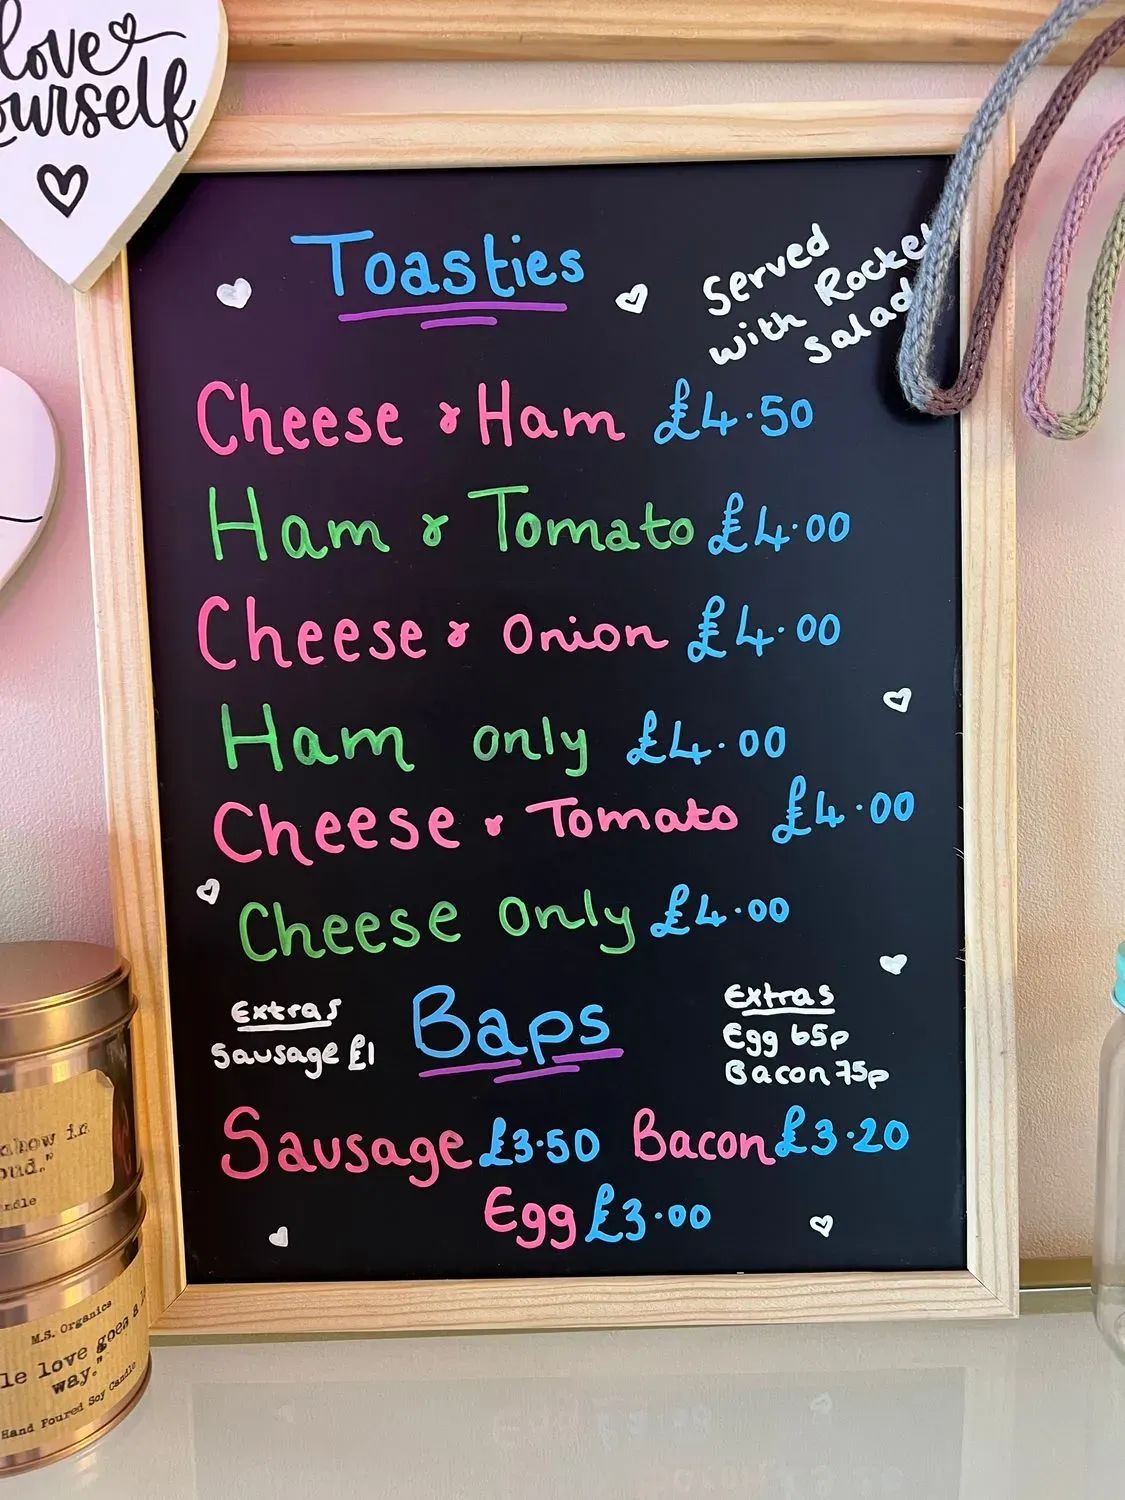 love
yourself
Toasties
Served
with Rocket
Salad
Cheese & Ham £4.50
Ham & Tomato £4.00
Cheese & Onion £4.00
Ham only £4.00
Cheese & Tomato £4.00
Cheese Only £4.00
Extras
Sausage £1
Baps
Extras
Egg 65p
Bacon 75p
Sausage £3.50 Bacon £3.20
Egg £3.00
in
M.S. Organics
love goes a
way."
Hand Poured Soy Candle